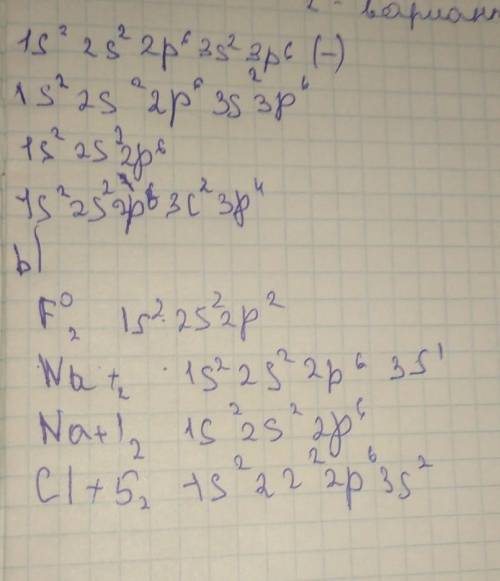 2 - вариант
1s² 2s² 2p⁶ 3s² 3p⁶ (-)
1s² 2s² 2p⁶ 3s² 3p⁶
1s² 2s² 2p⁶
1s² 2s² 2p⁶ 3c² 3p⁴
b)
F₂⁰ 1s² 2s² 2p²
Na +₂ 1s² 2s² 2p⁶ 3s¹
Na+1₂ 1s² 2s² 2p⁶
Cl+5₂ 1s² 2 2² 2p⁶ 3s²